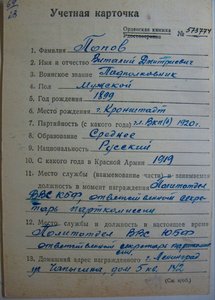 Учетная карточка
Орденская книжка
Удостоверение № 573774
1. Фамилия Попов
2. Имя и отчество Виталий Дмитриевич
3. Воинское звание Подполковник
4. Пол Мужской
5. Год рождения 1899
6. Место рождения г. Кронштадт
7. Партийность (с какого года) чл. ВКП(б) 1920г.
8. Образование Среднее
9. Национальность Русский
10. С какого года в Красной Армии 1919
11. Место службы (наименование части) и занимаемая
должность в момент награждения Политотдел
ВВС КБФ ответственный секре-
тарь парткомиссии
12. Место службы и должность в настоящее время
Политотдел ВВС
ответственный секретарь
13. Домашний адрес награжденного г. Ленинград
ул дом 5 кв.
(См. об.)